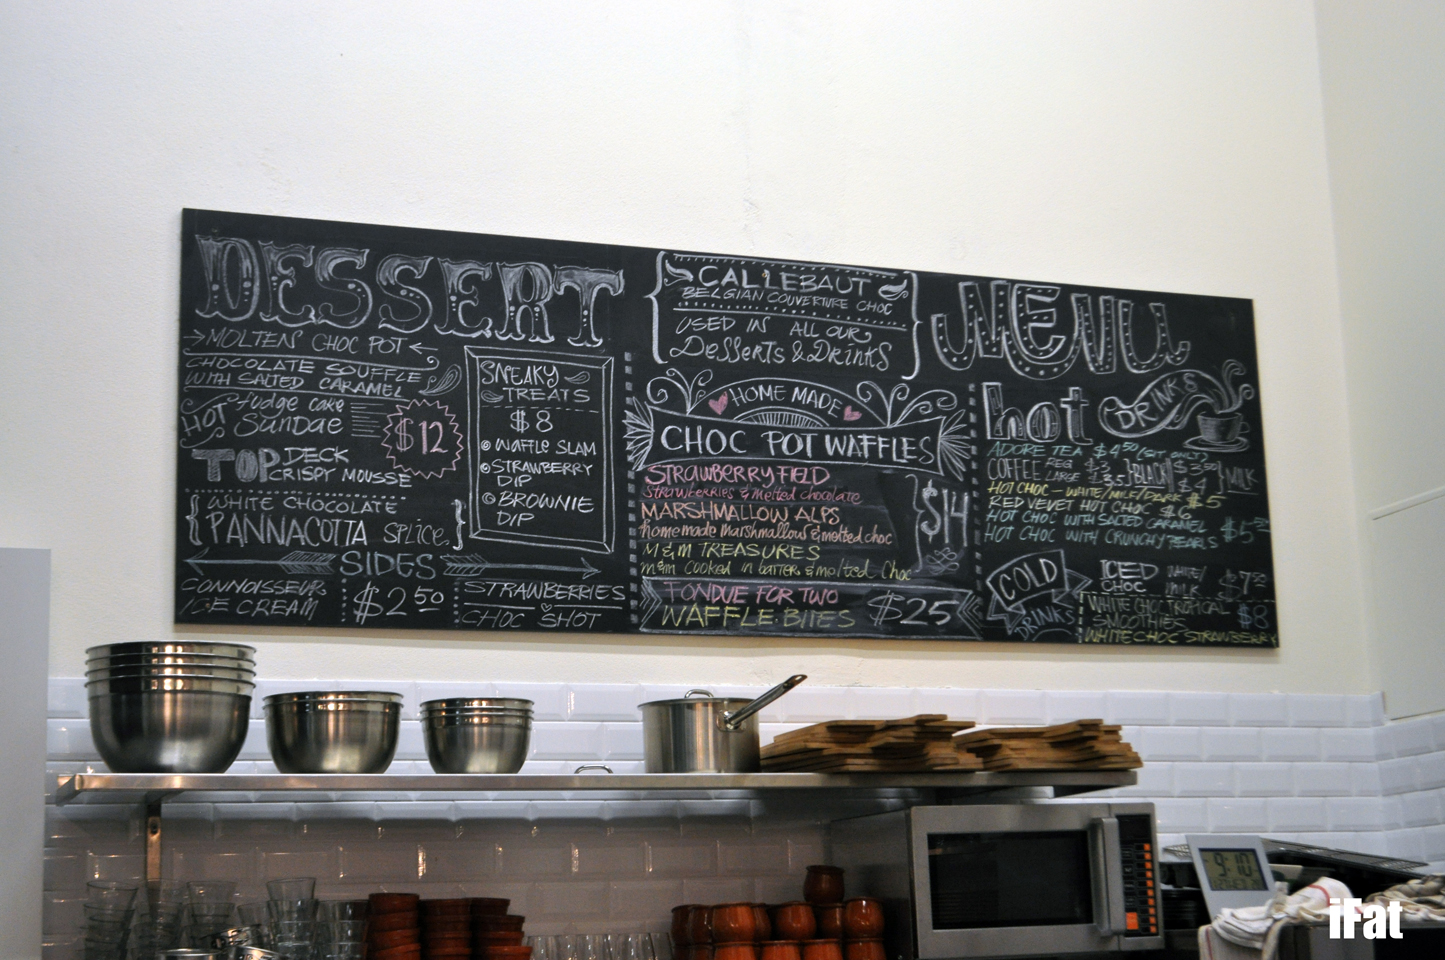 DESSERT
MOLTEN CHOC POT
CHOCOLATE SOUFFLE
WITH SALTED CARAMEL
HOT fudge cake
Sundae
$12
TOP DECK
CRISPY MOUSSE
WHITE CHOCOLATE
PANNACOTTA SPLICE.
SNEAKY
TREATS
$8
WAFFLE SLAM
STRAWBERRY
DIP
BROWNIE
DIP
SIDES
CONNOISSEUR
ICE CREAM
$2.50
STRAWBERRIES
CHOC SHOT
CALLEBAUT
BELGIAN COUVERTURE CHOC
USED IN ALL OUR
DESSERTS & DRINKS
HOME MADE
CHOC POT WAFFLES
STRAWBERRY FIELD
Strawberries & melted chocolate
MARSHMALLOW ALPS
home made marshmallow & melted choc
M&M TREASURES
m&m cooked in batter & melted choc
$14
FONDUE FOR TWO
WAFFLE BITES
$25
MENU
hot DRINKS
ADORE TEA $4.50
COFFEE REG $3
LARGE $3.5
BLACK
$3.50
$4
MILK
HOT CHOC - WHITE/MILK/DARK $5
RED VELVET HOT CHOC $6
HOT CHOC WITH SALTED CARAMEL
HOT CHOC WITH CRUNCHY PEARLS
COLD
DRINKS
ICED
CHOC
WHITE/
MILK
$7.50
WHITE CHOC TROPICAL
SMOOTHIES
$8
WHITE CHOC STRAWBERRY
9:10
iFat